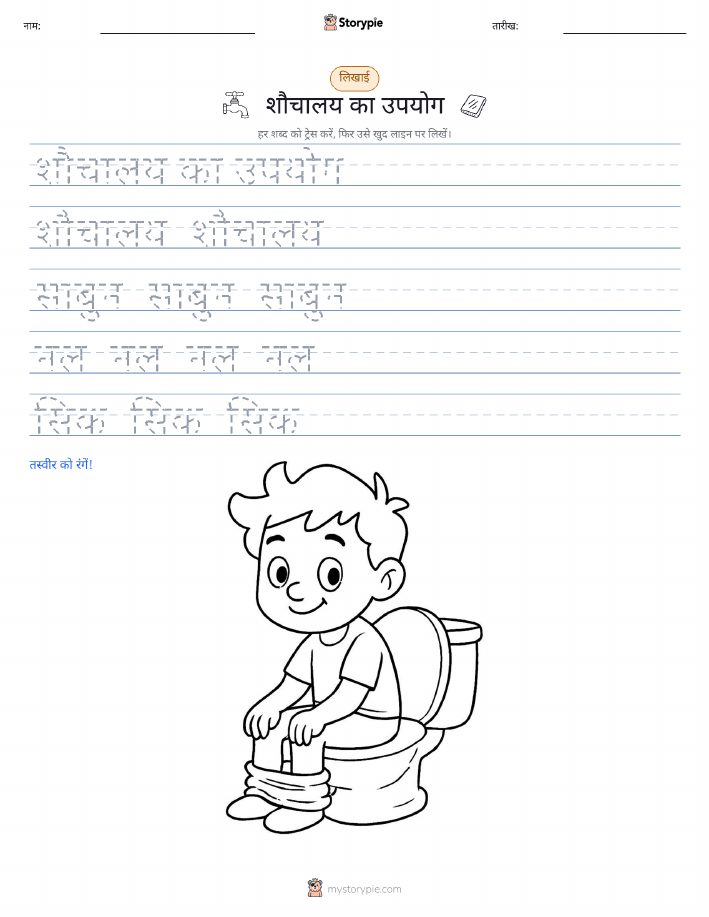 नाम:
Storypie
तारीख:
लिखाई
शौचालय का उपयोग
हर शब्द को ट्रेस करें, फिर उसे खुद लाइन पर लिखें।
शौचालय का उपयोग
शौचालय शौचालय
साबुन साबुन साबुन
नल नल नल नल
सिंक सिंक सिंक
तस्वीर को रंगें!
mystorypie.com